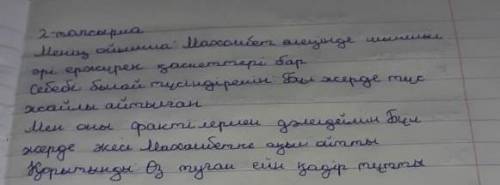 2-тапсырма
Менің ойымша Махамбет өлеңінде шыншыл
әрі ержүрек қасиеттері бар
Себебі былай түсіндіремін Бұл жерде түс
жайлы айтылған
Мен оны фактілермен дәлелдеймін Бұл
жерде жесі Махамбетке ақын айтты
Қорытынды Өз туған елін қадір тұтты